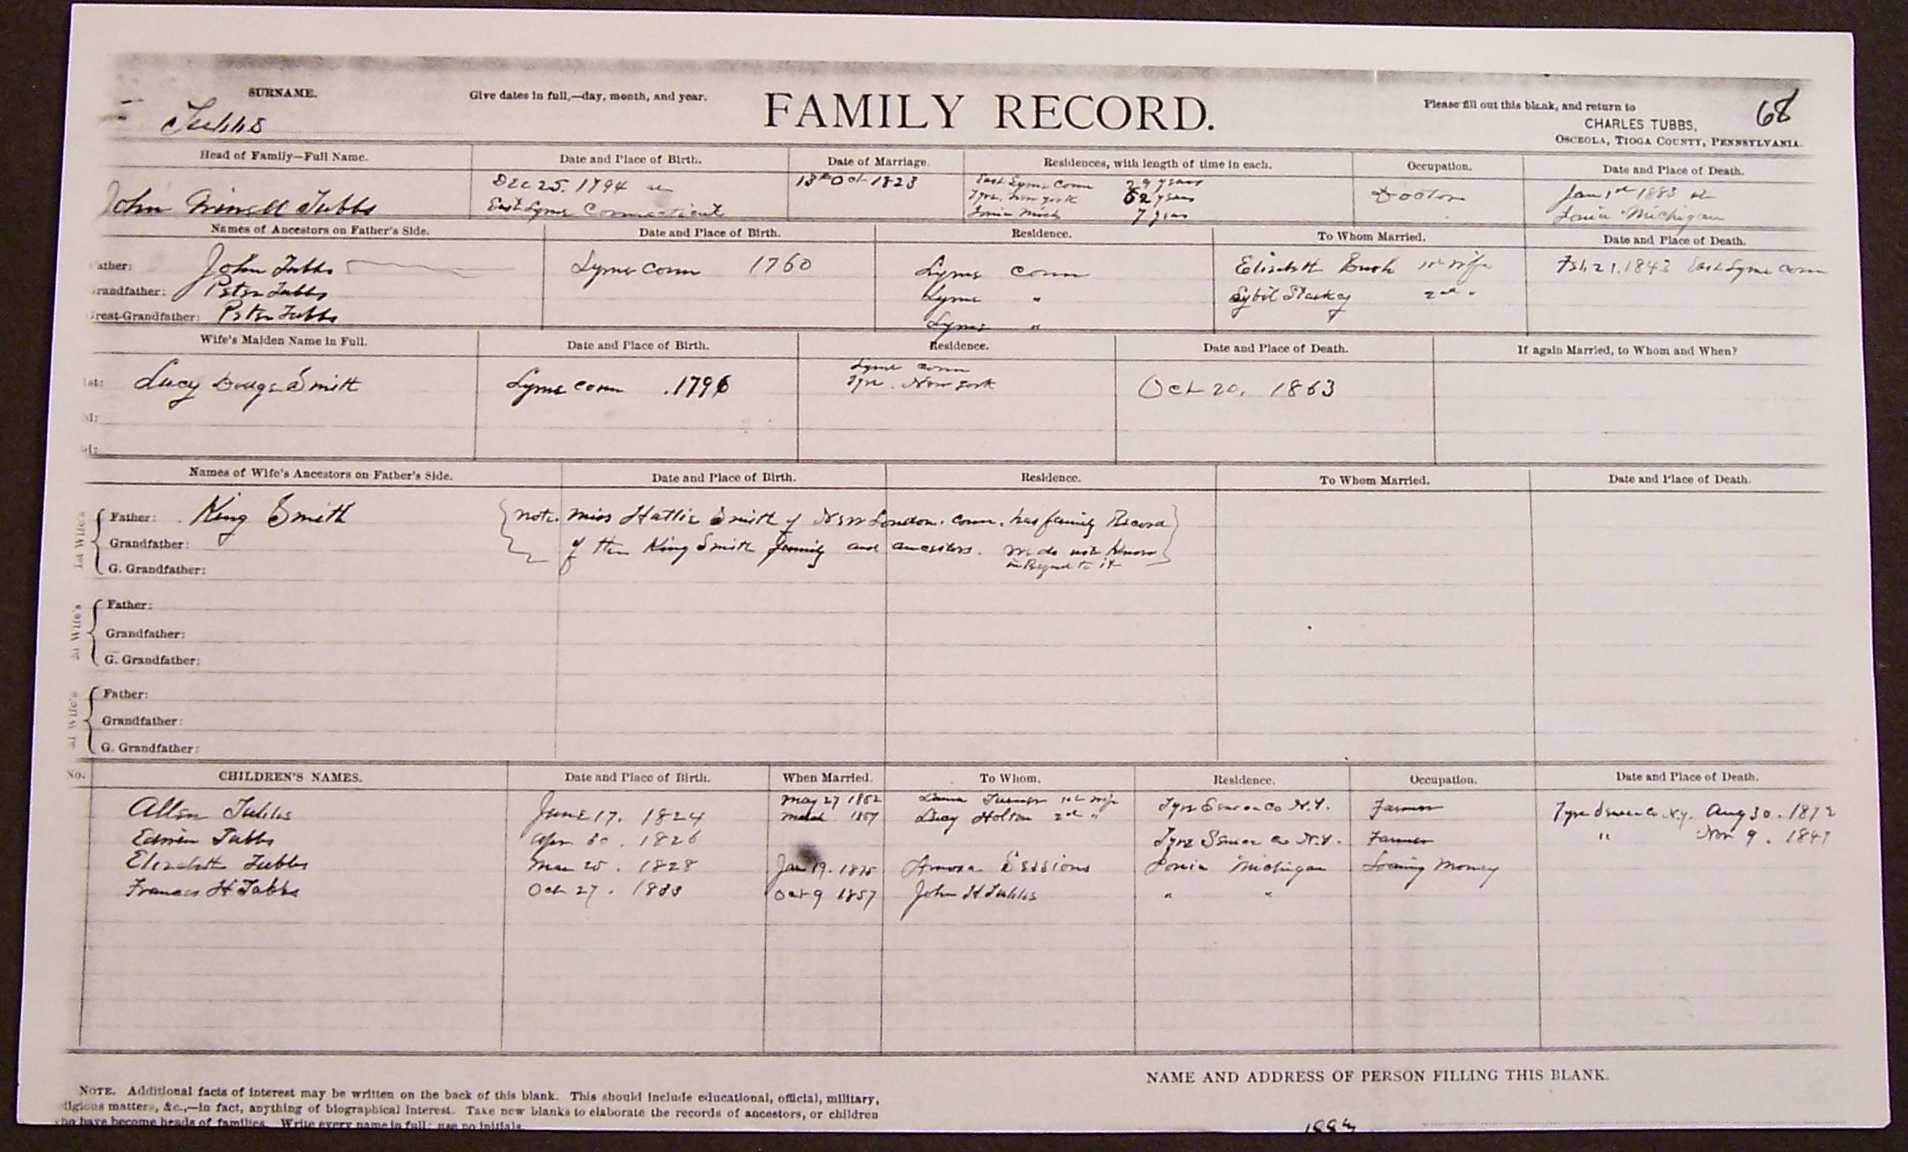 SURNAME.
Give dates in full,—day, month, and year.
FAMILY RECORD.
Please fill out this blank, and return to
68
CHARLES TUBBS,
OSCEOLA, TIOGA COUNTY, PENNSYLVANIA.
Tubbs
Head of Family—Full Name. Date and Place of Birth. Date of Marriage. Residences, with length of time in each. Occupation. Date and Place of Death.
John Tubbs Dec 25. 1794 in 13th Oct 1823 East Lyme Conn 29 years Doctor Jan 1st 1883 at
East Lyme Connecticut Tyre, New York 62 years Ionia Michigan
Ionia Mich 7 years
Names of Ancestors on Father's Side. Date and Place of Birth. Residence. To Whom Married. Date and Place of Death.
ather: John Tubbs Lyme Conn 1760 Lyme Conn Elizabeth Bush 1st wife Feb. 21. 1843 East Lyme Conn
randfather: Peter Tubbs Lyme " Sybil 2nd "
reat-Grandfather: Peter Tubbs Lyme "
Wife's Maiden Name in Full. Date and Place of Birth. Residence. Date and Place of Death. If again Married, to Whom and When?
1st: Lucy Smith Lyme Conn 1796 Lyme Conn Oct 20, 1863
Tyre. New York
Names of Wife's Ancestors on Father's Side. Date and Place of Birth. Residence. To Whom Married. Date and Place of Death.
1st Wife's
Father: King Smith note. Miss Hattie Smith of New London. Conn. has family Record
Grandfather: of the King Smith family and ancestors. We do not know
G. Grandfather: in Regard to it
2d Wife's
Father:
Grandfather:
G. Grandfather:
3d Wife's
Father:
Grandfather:
G. Grandfather:
No. CHILDREN'S NAMES. Date and Place of Birth. When Married. To Whom. Residence. Occupation. Date and Place of Death.
Allen Tubbs June 17. 1824 May 27 1852 Turner 1st wife Tyre Seneca Co N.Y. Farmer Tyre Seneca Co N.Y. Aug 30. 1872
March 1857 Lucy Holton 2nd "
Edwin Tubbs Apr 30. 1826 Tyre Seneca Co N.Y. Farmer " Nov 9. 1847
Elizabeth Tubbs Mar 25. 1828 Jan 19. 1875 Sessions Ionia Michigan Loaning Money
Frances H Tubbs Oct 27. 1833 Oct 9 1857 John H Tubbs " "
NAME AND ADDRESS OF PERSON FILLING THIS BLANK.
NOTE. Additional facts of interest may be written on the back of this blank. This should include educational, official, military,
eligious matters, &c.,—in fact, anything of biographical interest. Take new blanks to elaborate the records of ancestors, or children
who have become heads of families. Write every name in full; use no initials.